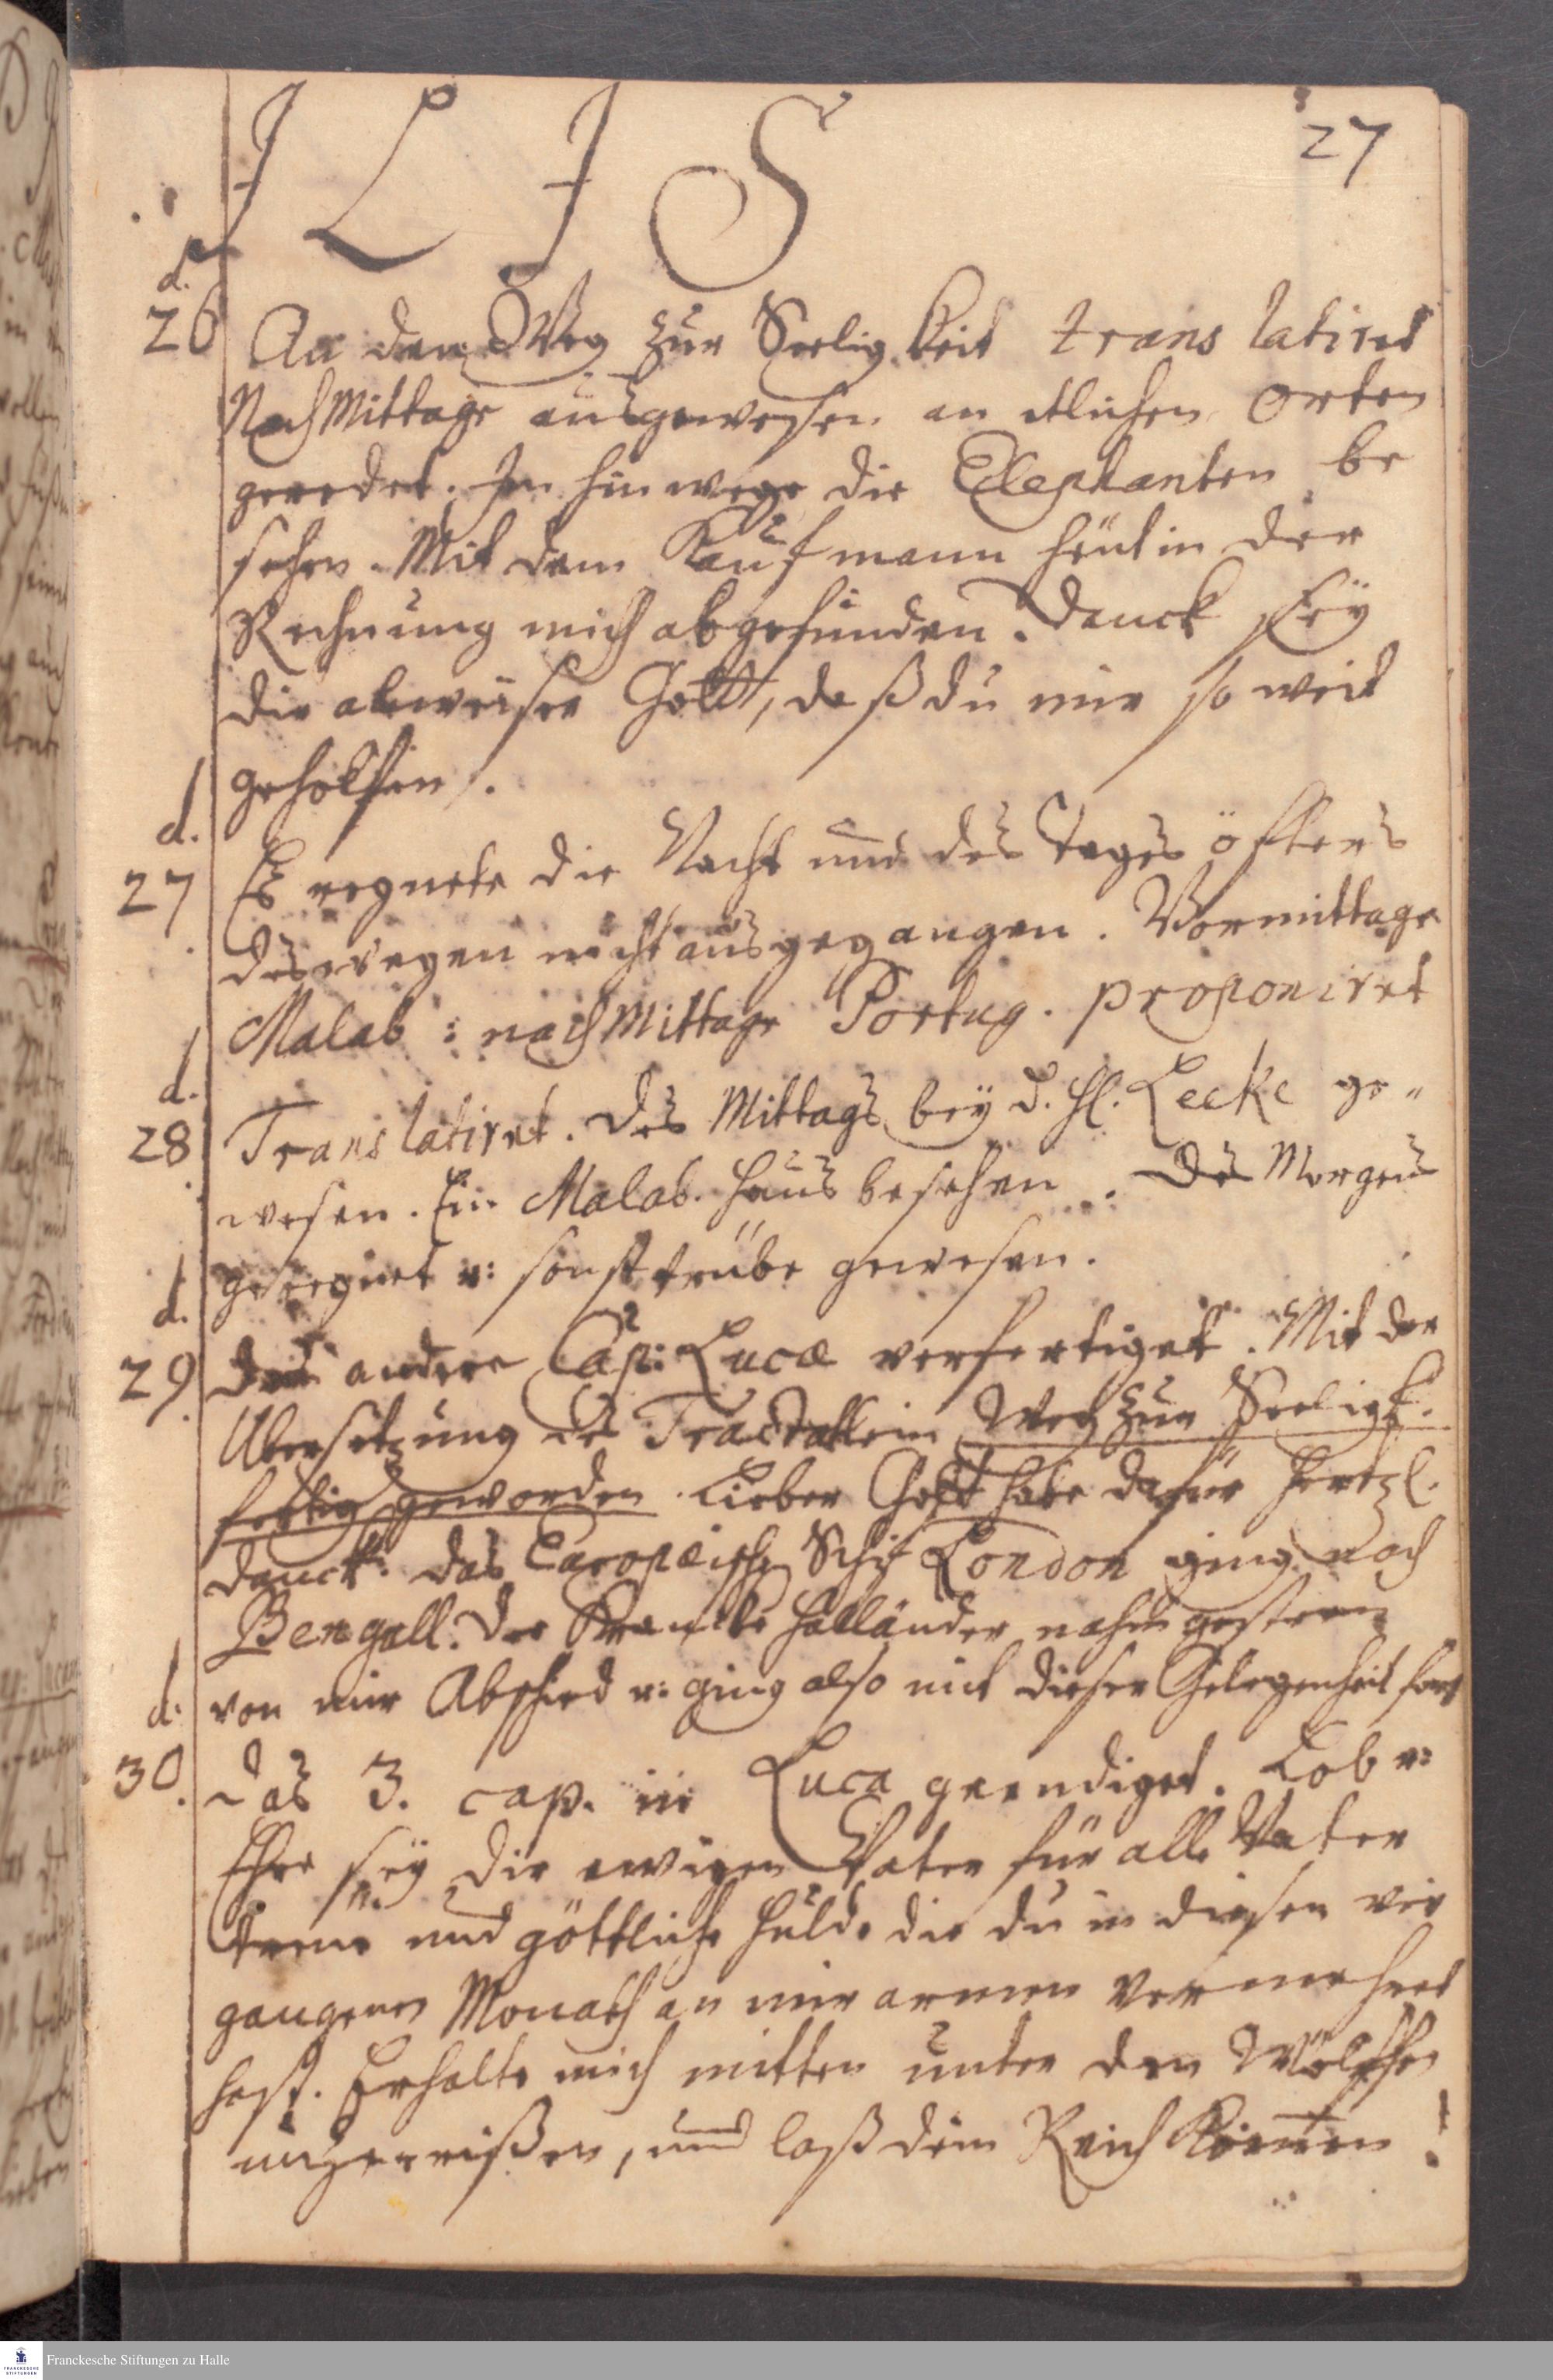 27
I L I S
d.
26 An dem Weg zur Seeligkeit translatiret
Nachmittage ausgewesen an etlichen Orten
geredet. Im hinwege die Elephanten be
sehen. Mit dem Kaufmann heut in der
Rechnung mich abgefunden. Danck seÿ
dir alweiser Gott, daß du mir so weit
geholffen.
d.
27 Es regnete die Nacht und des Tages öfters
deswegen nicht ausgegangen. Vormittage
Malab: nachmittage Portug. proponiret
d.
28 Translatiret. Des Mittags beÿ d. H. Lecke ge„
wesen. Ein Malab. Haus besehen. Des Morgens
geregnet u: sonst trübe gewesen.
d.
29 Das andere Cap: Lucæ verfertiget. Mit der
Ubersetzung des Tractätlein Weg zur Seeligk.
fertig geworden. Lieber Gott habe dafür hertzl.
danck. Das Europæische Schif London ging nach
Bengall. Der Krancke Holländer nahm gestern
von mir Abschied u: ging also mit dieser Gelegenheit fort
d.
30. Das 3. cap. in Luca geendiget. Lob u:
Ehre seÿ dir ewigen Vater für alle Vater
treue und göttliche Hulde die du in diesen ver
gangenen Monath an mir armen vermehret
hast. Erhalte mich mitten unter den Wölffen
unzerrißen, und laß dein Reich Kommen!
Franckesche Stiftungen zu Halle